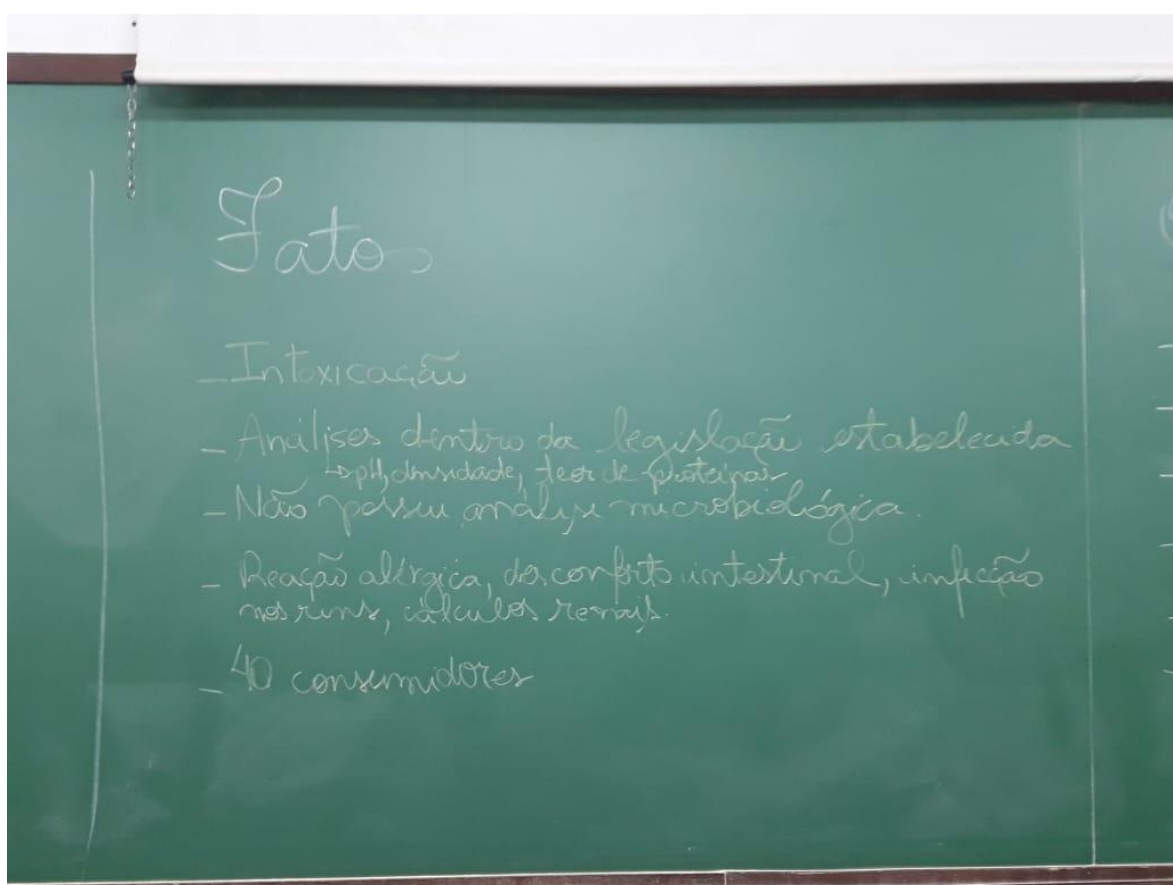 Fatos
- Intoxicação
- Análises dentro da legislação estabelecida
↳ pH, densidade, teor de proteínas
- Não possui análise microbiológica.
- Reação alérgica, desconforto intestinal, infecção
nos rins, cálculos renais.
- 40 consumidores